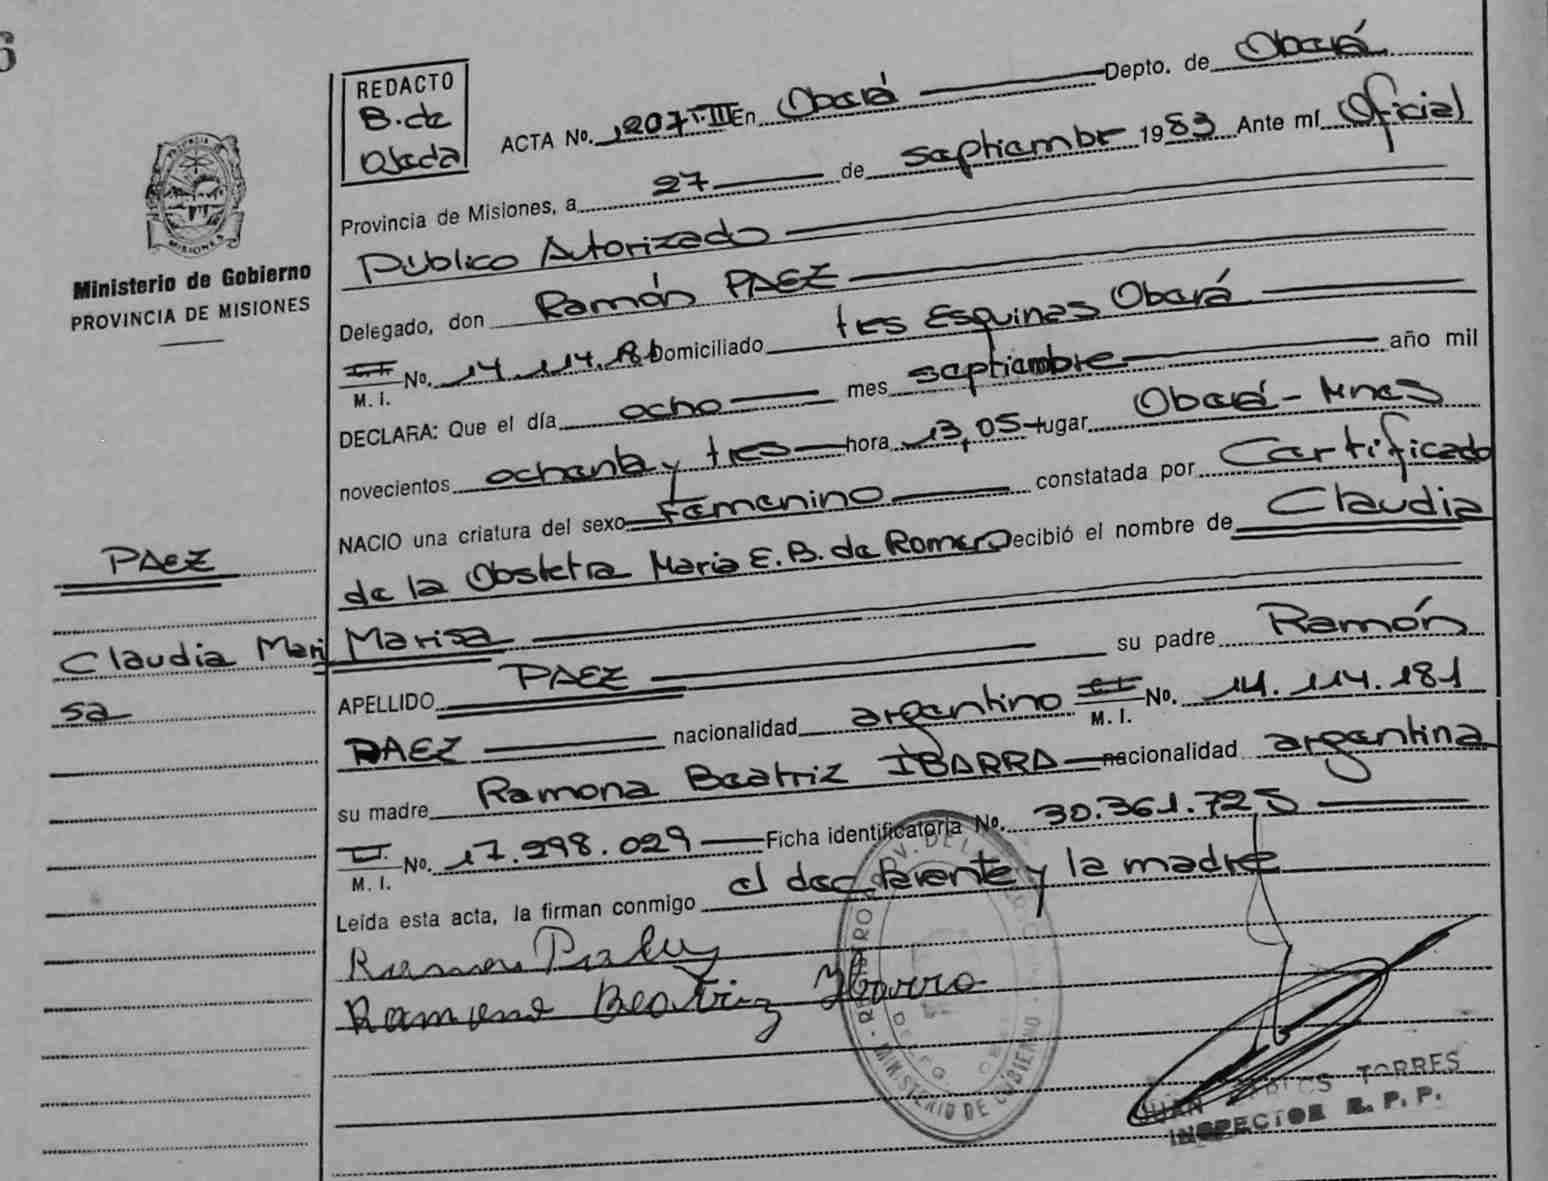 6
REDACTO
B. de
Ojeda
ACTA No. 1207 T. III En Oberá Depto. de Oberá
Provincia de Misiones, a 27 de septiembre 1983 Ante mí Oficial
Público Autorizado
Delegado, don Ramón PAEZ
M. I. No. 14.114.181 Domiciliado tres Esquinas Oberá
DECLARA: Que el día ocho mes septiembre año mil
novecientos ochenta y tres hora 13,05 lugar Oberá - Mnes
NACIO una criatura del sexo femenino constatada por Certificado
de la Obstetra Maria E. B. de Romero recibió el nombre de Claudia
Marisa
APELLIDO PAEZ su padre Ramón
PAEZ nacionalidad argentino M. I. No. 14.114.181
su madre Ramona Beatriz IBARRA nacionalidad argentina
M. I. No. 17.298.029 Ficha identificatoria No. 30.361.725
Leída esta acta, la firman conmigo el declarente y la madre
Ramon Paez
Ramona Beatriz Ibarra
MISIONES
Ministerio de Gobierno
PROVINCIA DE MISIONES
PAEZ
Claudia Mari
sa
MINISTERIO DE GOBIERNO
JUAN TORRES
INSPECTOR R. P. P.